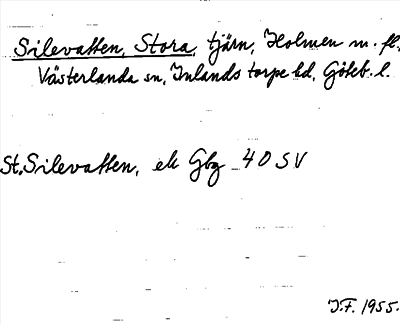 Silevatten, Stora, tjärn, Holmen m. fl.
Västerlanda sn, Inlands torpe hd, Göteb. l.
St. Silevatten, ek Gbg 40 SV
J.F. 1955.